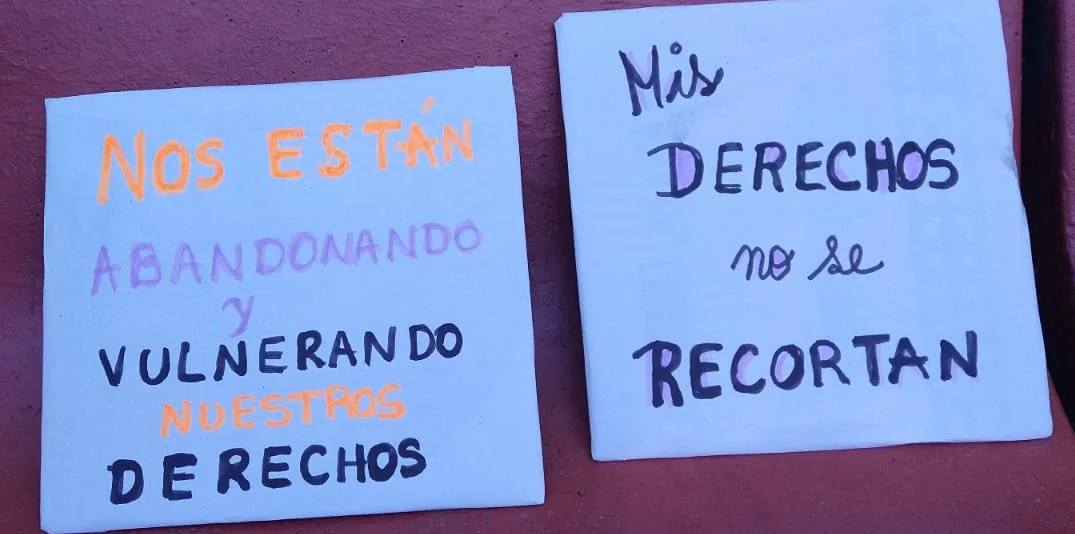 NOS ESTÁN
ABANDONANDO
y
VULNERANDO
NUESTROS
DERECHOS
Mis
DERECHOS
no se
RECORTAN